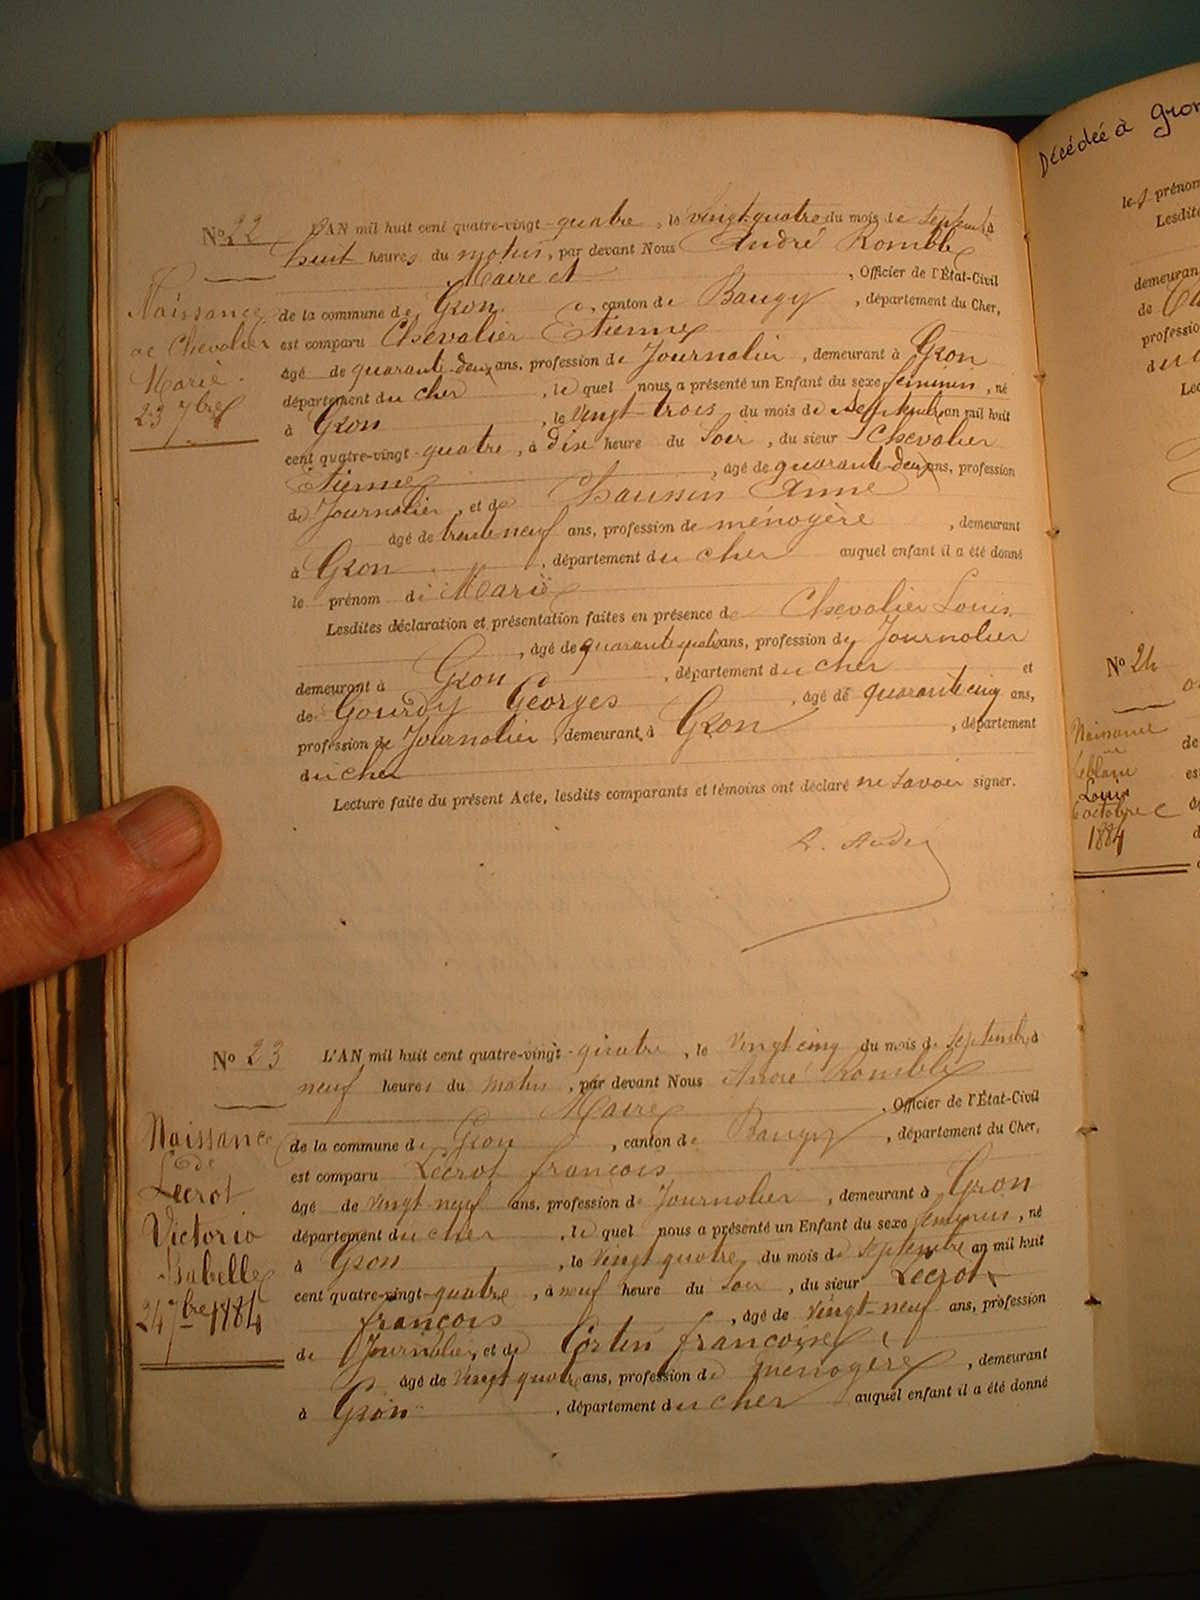 No 22
L'AN mil huit cent quatre-vingt-quatre, le vingt-quatre du mois de septembre à
huit heures du matin, par devant Nous André Romble
Maire et , Officier de l'État-Civil
de la commune de Gron, canton de Baugy, département du Cher,
est comparu Chevalier Etienne
âgé de quarante-deux ans, profession de Journalier, demeurant à Gron
département du cher, le quel nous a présenté un Enfant du sexe féminin, né
à Gron, le vingt-trois du mois de septembre an mil huit
cent quatre-vingt-quatre, à dix heure du soir, du sieur Chevalier
Etienne, âgé de quarante-deux ans, profession
de Journalier, et de Anne
âgé de trente neuf ans, profession de ménagère, demeurant
à Gron, département du cher auquel enfant il a été donné
le prénom de Marie
Lesdites déclaration et présentation faites en présence de Chevalier Louis
, âgé de quarante quatre ans, profession de Journalier
demeurant à Gron, département du cher et
de Gourdy Georges, âgé de quarante cinq ans,
profession de Journalier, demeurant à Gron, département
du cher
Lecture faite du présent Acte, lesdits comparants et témoins ont déclaré ne savoir signer.
R. André
Naissance
de Chevalier
Marie
23 7bre
No 23
L'AN mil huit cent quatre-vingt-quatre, le vingt cinq du mois de septembre à
neuf heures du matin, par devant Nous André Romble
Maire, Officier de l'État-Civil
de la commune de Gron, canton de Baugy, département du Cher,
est comparu Lecrot françois
âgé de vingt-neuf ans, profession de Journalier, demeurant à Gron
département du cher, le quel nous a présenté un Enfant du sexe féminin, né
à Gron, le vingt quatre du mois de septembre an mil huit
cent quatre-vingt-quatre, à neuf heure du soir, du sieur Lecrot
françois, âgé de vingt-neuf ans, profession
de Journalier, et de françoise
âgé de vingt quatre ans, profession de menagère, demeurant
à Gron, département du cher auquel enfant il a été donné
Naissance
de
Lecrot
Victoria
Isabelle
24 7bre 1884
Décédée à Gron
les prénom
Lesdite
demeuran
de
profession
du
No 24
Naissance
de
Leblanc
Louis
6 octobre
1884